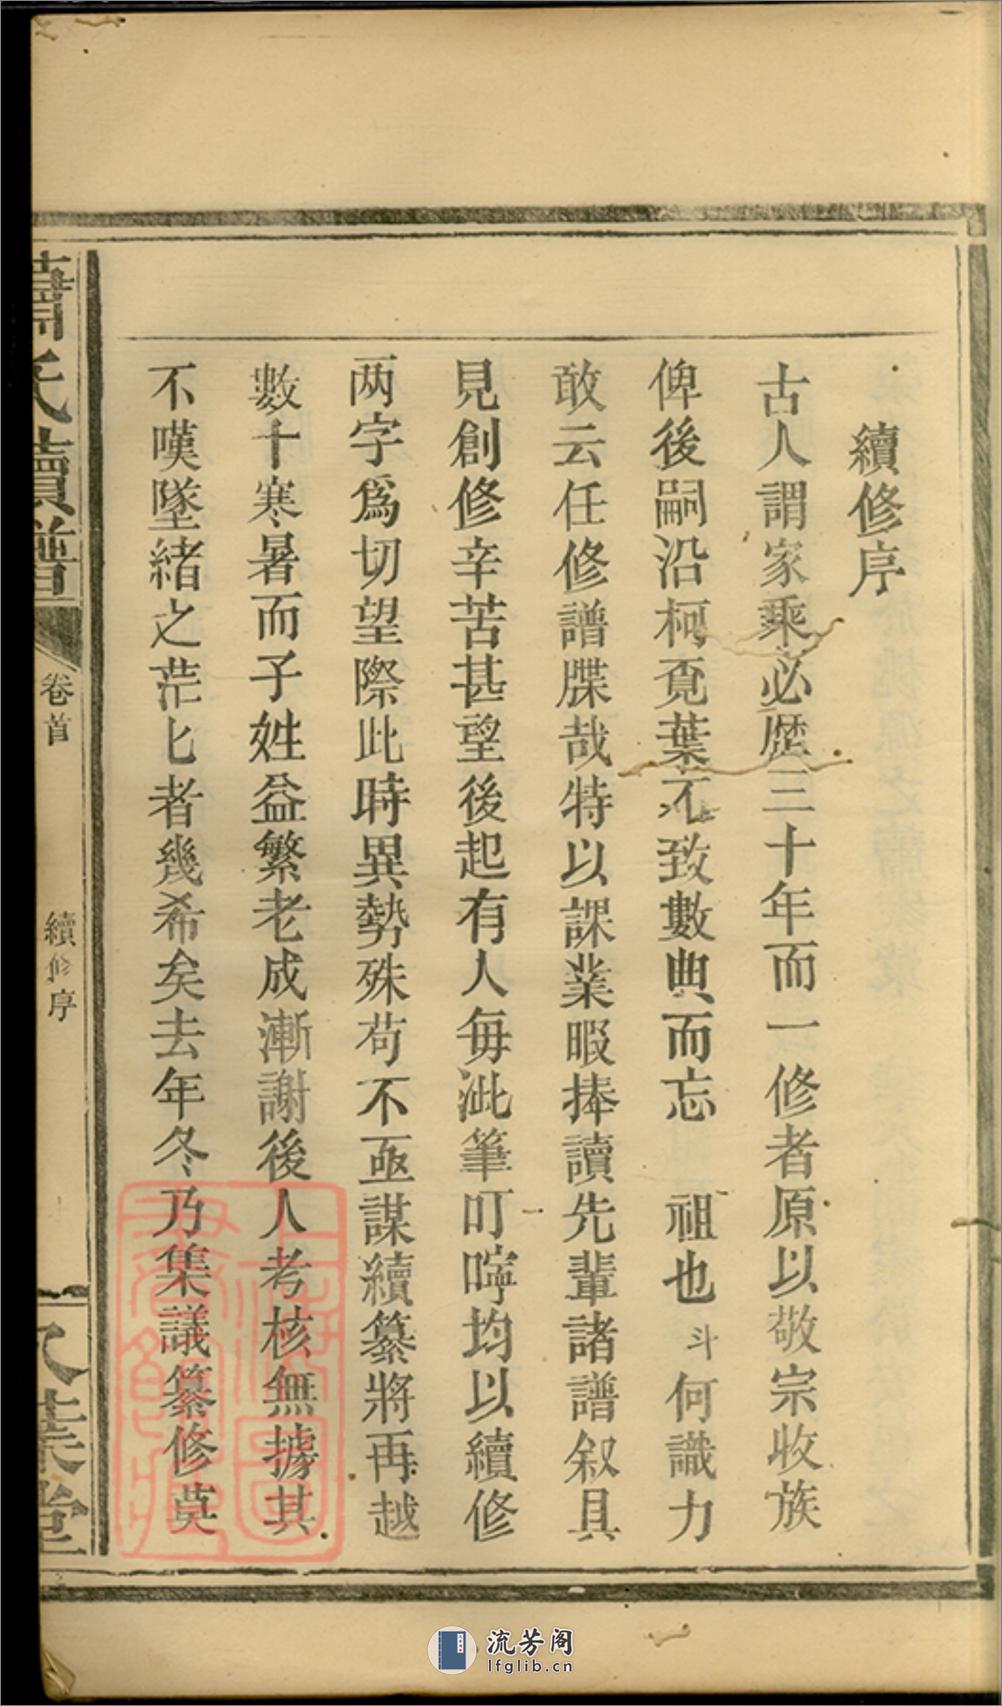 續修序
古人謂家乘必歷三十年而一修者原以敬宗收族
俾後嗣沿柯覓葉不致數典而忘　祖也斗何識力
敢云任修譜牒哉特以課業暇捧讀先輩諸譜叙具
見創修辛苦甚望後起有人每泚筆叮嚀均以續修
两字爲切望際此時異勢殊苟不亟謀續纂將再越
數十寒暑而子姓益繁老成漸謝後人考核無據其
不嘆墜緒之茫匕者幾希矣去年冬乃集議纂修莫
氏續譜
卷首
續修序
上海圖書館藏
流芳阁
lfglib.cn